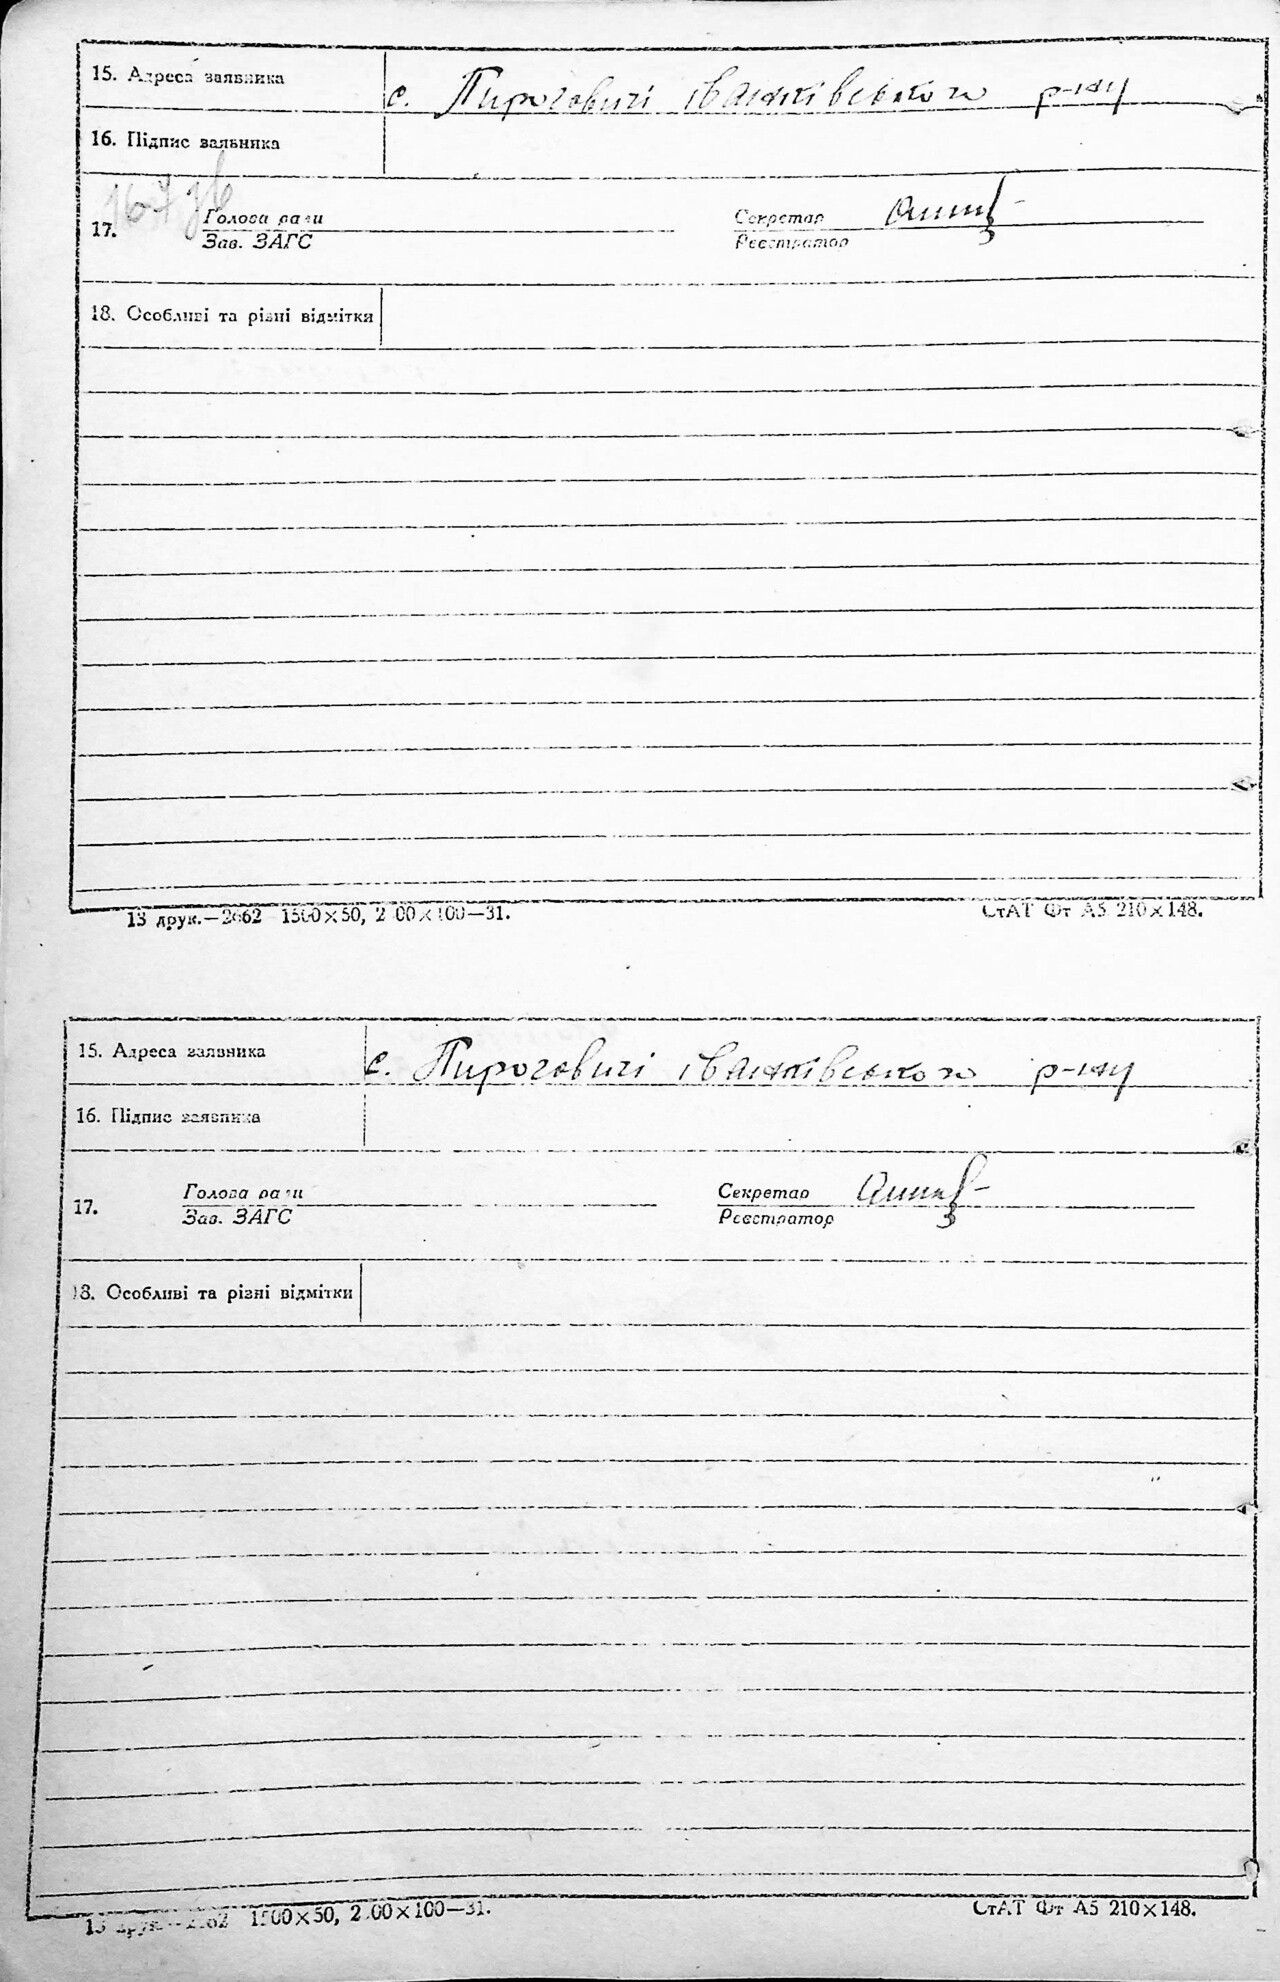 15. Адреса заявника с. Пироговичі іванківського р-ну
16. Підпис заявника
167 зв
17. Голова ради Секретар
Зав. ЗАГС Реєстратор
18. Особливі та різні відмітки
13 друк.—2662 1500×50, 2 00×100—31. СтАТ Фт А5 210×148.
15. Адреса заявника с. Пироговичі іванківського р-ну
16. Підпис заявника
17. Голова ради Секретар
Зав. ЗАГС Реєстратор
18. Особливі та різні відмітки
13 друк.—2662 1500×50, 2 00×100—31. СтАТ Фт А5 210×148.